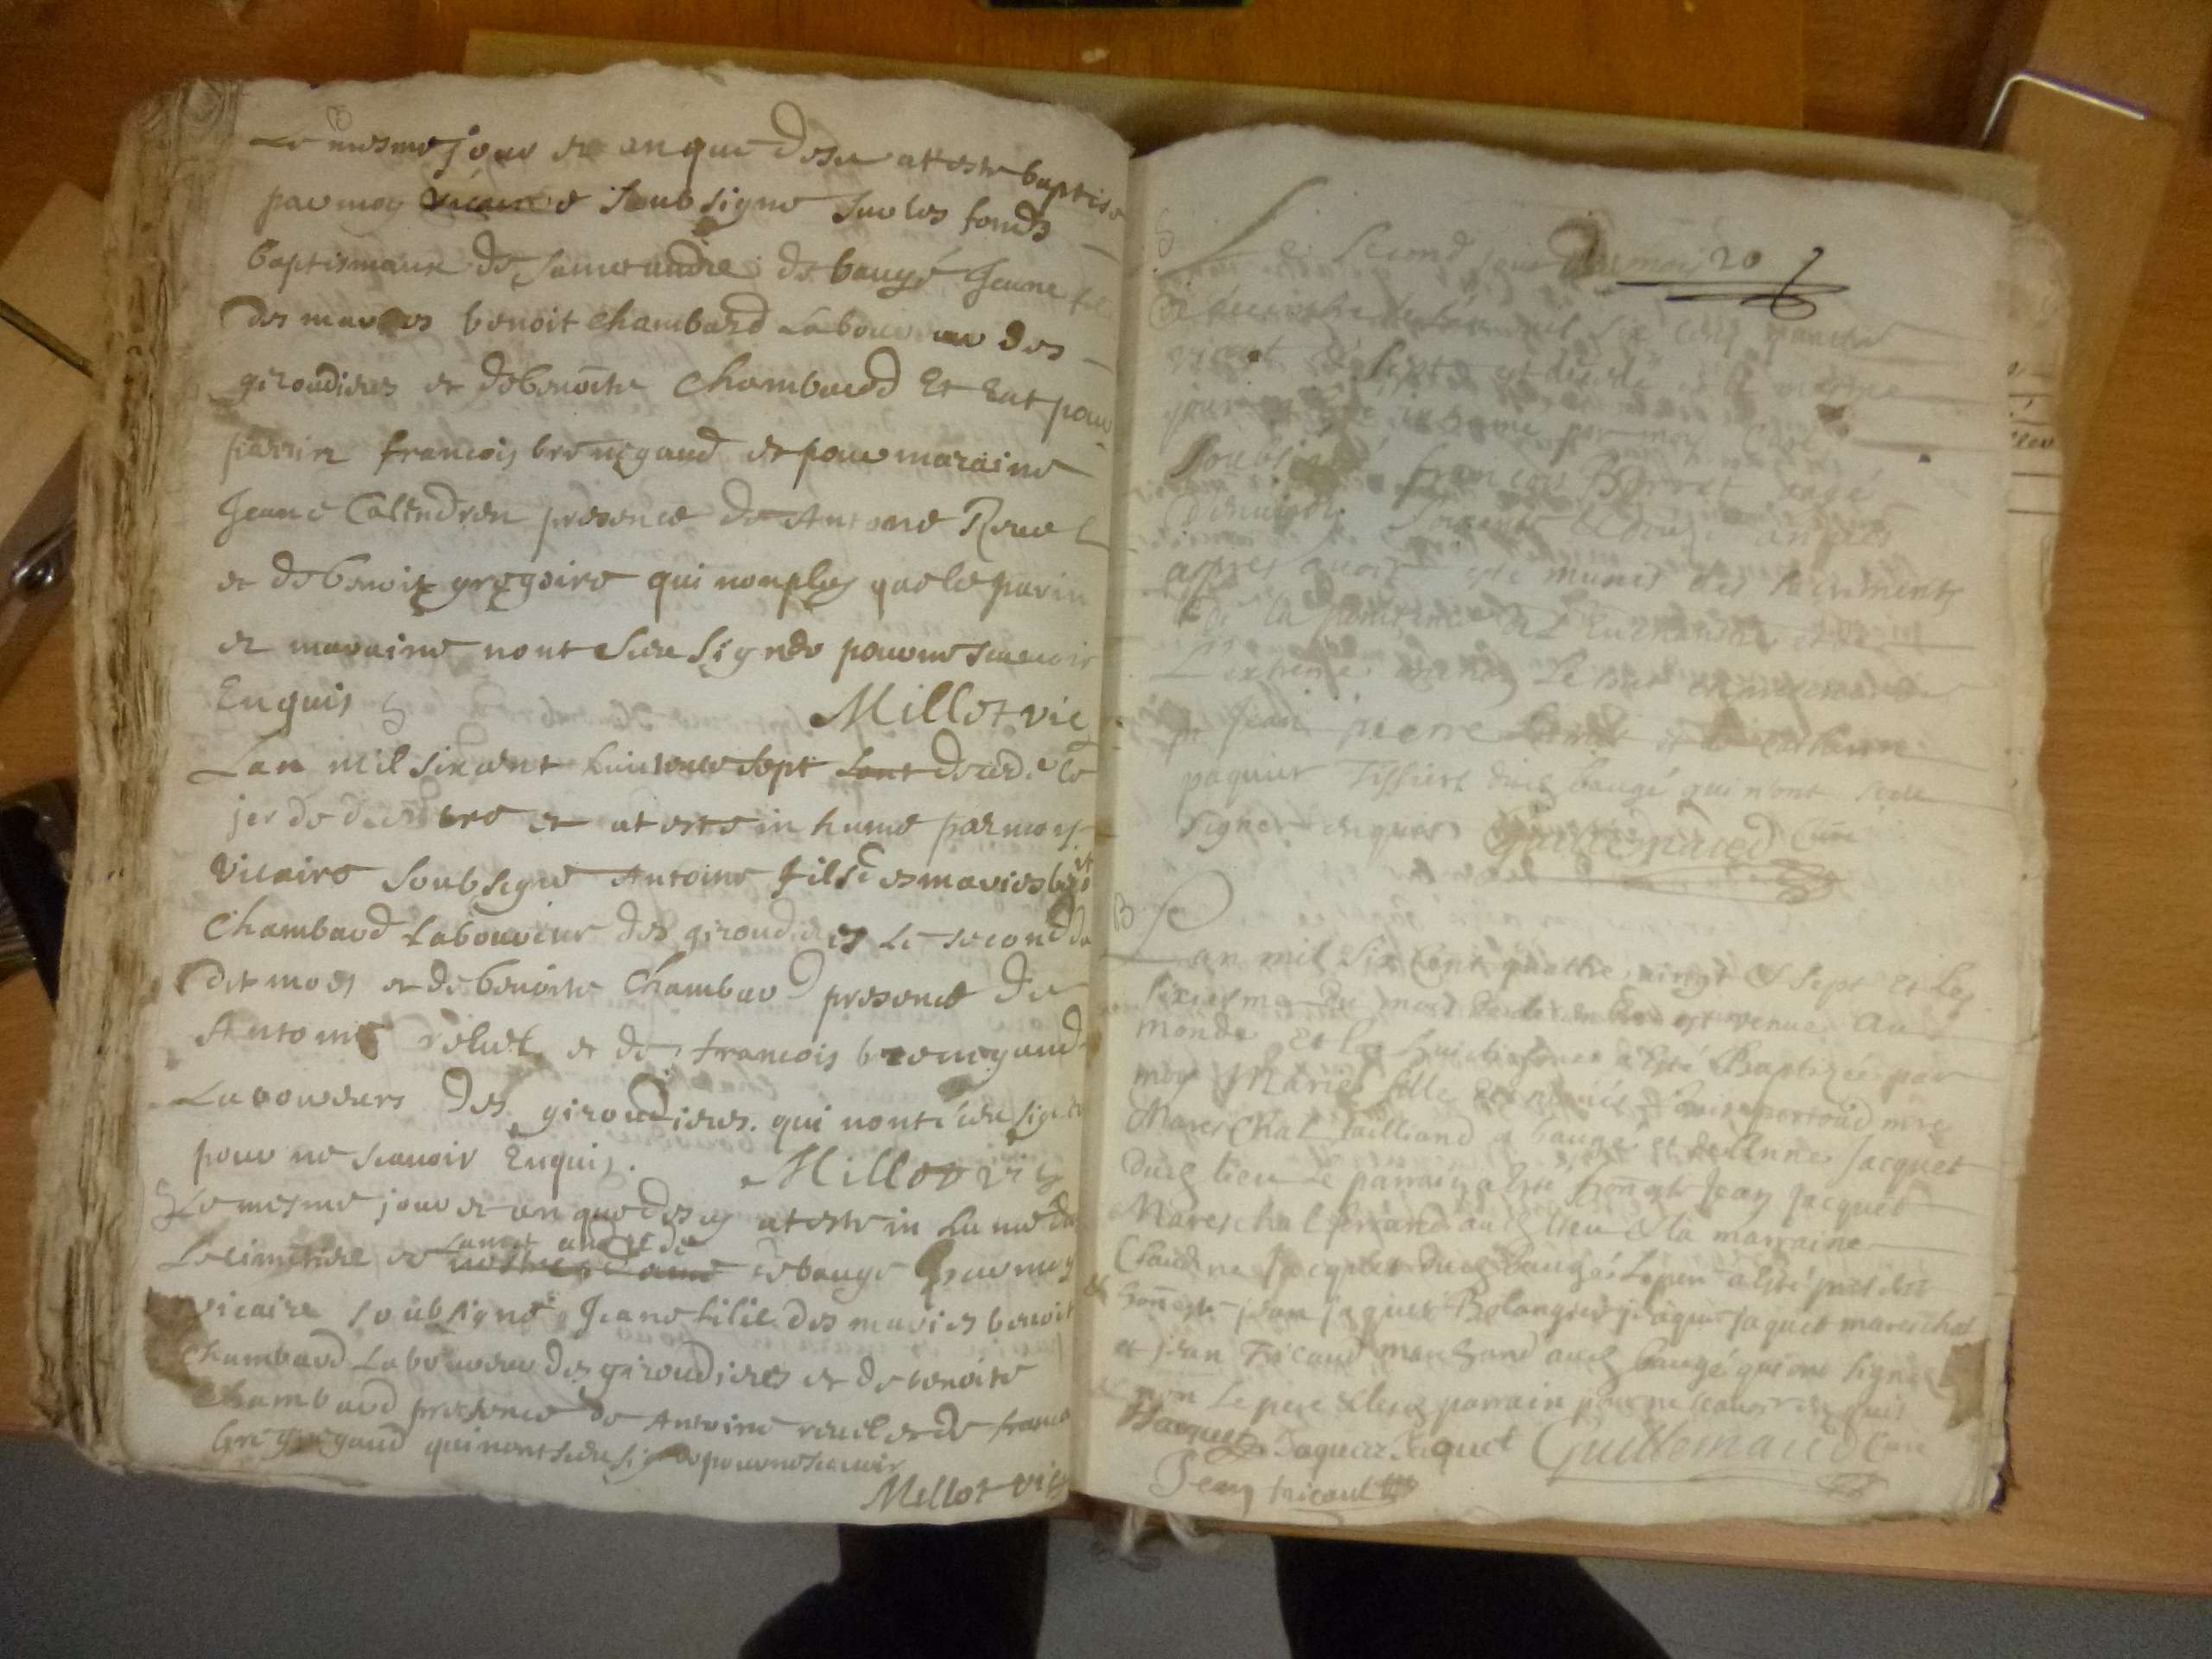 B
Le mesme jour et an que desu at este baptise
par moy vicaire soubsigne sur les fonds
baptismaux de sainct andre de baugé Jeane
des maries benoit Chambard Laboureur des
giroudieres et de benoite Chambard Et Eut pour
parrin francois broucgaud et pour maraine
Jeane Calendren presence de Antoine Revel
et de benoit gregoire qui non plus que le parin
et maraine nont sceu signer pour ne scavoir
Enquis
Millot vic
Lan mil six cent huictante sept decede le
jer de decembre et at este in hume par moy
vicaire soubsigne Antoine fils des maries bt
Chambard Laboureur des giroudieres le second du
dit mois et de benoite Chambard presence de
Antoine et de francois broucgaud
Laboureurs des giroudieres qui nont sceu signer
pour ne scavoir Enquis.
Millot vic
S
Le mesme jour et an que desus at este in hume dans
Le cimetiere de sainct andre de baugé par moy
vicaire soubsigne Jeane fille des maries benoit
Chambard Laboureur des giroudieres et de benoite
Chambard presence de Antoine revel et de francois
qui nont sceu signer pour ne scavoir
Millot vic
S
Le second jour du mois 20
de decembre de l'an mil six cens quatre
vingt et sept est décédé et le mesme
jour a esté inhumé par moy Curé
soubsigné françois Borret aagé
d'environ soixante et douze années
apres avoir esté munis des sacrements
de la penitence de L'Eucharistie et de
L'extreme onction Le tout en presence de
Jean pierre et de
paquier Tissiers dud baugé qui n'ont sceu
signer enquis Guillemaud Curé
B
L'an mil six cent quattre vingt et sept et Le
sixiesme du mois de decembre est venue au
monde et le huictiesme a esté Baptizée par
moy Marie fille des mariés Louis pertoud mre
Mareschal tailliand a baugé et de Anne Jacquet
dud lieu Le parrain a esté honeste Jean Jacquet
Mareschal aud lieu et la marraine
Claudine Jacquet dud baugé Le pere a esté present
honneste jean jaquet Bolangier jaque jaquet mareschal
et jean Tricaud marchand aud baugé qui ont signé
non Le pere et led parrain pour ne scavoir enquis
J Jacquet Jaques Jaquet Guillemaud Curé
Jean tricaud